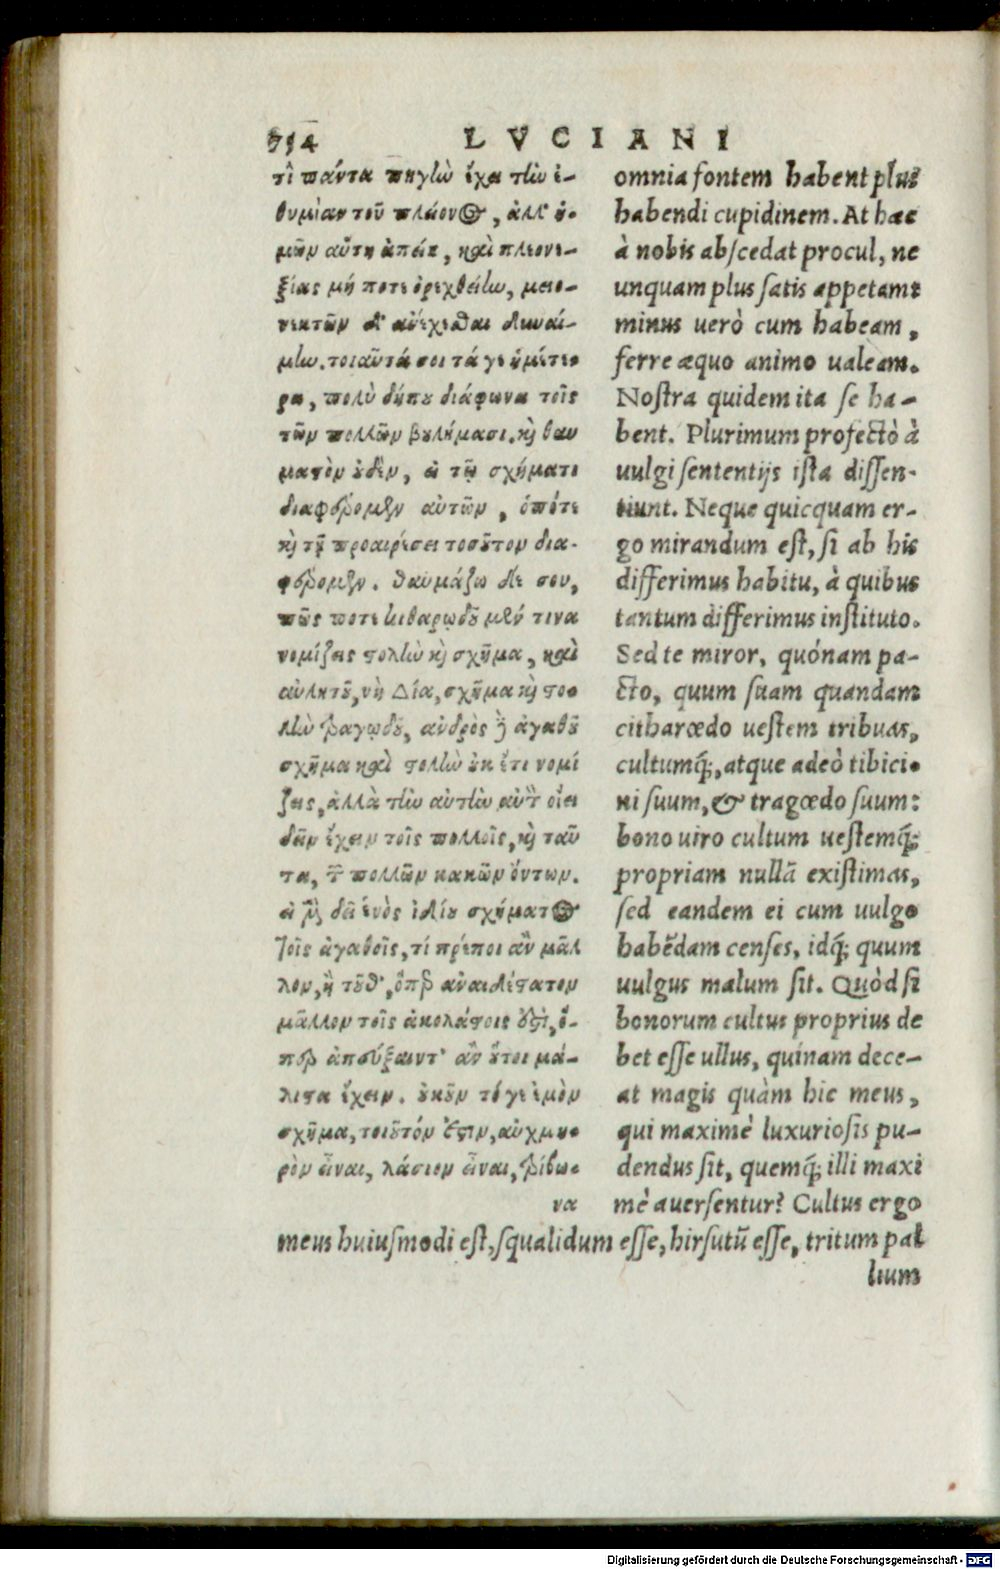 714 LVCIANI
τι πάντα πηγὼ ἔχει τὼ ἐ-
θυμίαν τοῦ πλέονος, ἀλλ' ἐ-
μῶν αὕτη ἀπείη, καὶ πλεονε-
ξίας μή ποτε ὀρεχθείlω, μειο-
νεκτῶν δ' ἀνέχεσθαι δυναί-
μlω. τοιαῦτά σοι τά γε ἡμέτε
ρα, πολὺ δήπου διάφωνα τοῖς
τῶν πολλῶν βουλήμασι. καὶ θαυ
μαστὸν οὐδὲν, εἰ τῷ σχήματι
διαφέρομεν αὐτῶν, ὁπότε
καὶ τῇ προαιρέσει τοσοῦτον δια-
φέρομεν. θαυμάζω δέ σου,
πῶς ποτε κιθαρῳδοῦ μέν τινα
νομίζεις στολὼ καὶ σχῆμα, καὶ
αὐλητοῦ, νὴ Δία, σχῆμα καὶ στο
λὼ τραγῳδοῦ, ἀνδρὸς δὲ ἀγαθοῦ
σχῆμα καὶ στολὼ οὐκ ἔτι νομί
ζεις, ἀλλὰ τὼ αὐτὼ αὐτὸν οἴει
δεῖν ἔχειν τοῖς πολλοῖς, καὶ ταῦ
τα, τῶν πολλῶν κακῶν ὄντων.
εἰ μὲν δεῖ ἑνὸς ἰδίου σχήματος
τοῖς ἀγαθοῖς, τί πρέποι ἂν μᾶλ
λον, ἢ τοῦθ', ὅπερ ἀναιδέστατον
μᾶλλον τοῖς ἀκολάστοις ἐστὶ, ὅ-
περ ἀπεύξαιντ' ἂν οὗτοι μά-
λιστα ἔχειν. οὐκοῦν τό γε ἐμὸν
σχῆμα, τοιοῦτόν ἐστιν, αὐχμηρ
ρὸν εἶναι, λάσιον εἶναι, τρίβω-
να
omnia fontem habent plus
habendi cupidinem. At haec
à nobis abscedat procul, ne
unquam plus satis appetam:
minus uerò cum habeam,
ferre æquo animo ualeam.
Nostra quidem ita se ha-
bent. Plurimum profectò à
uulgi sententijs ista dissen-
tiunt. Neque quicquam er-
go mirandum est, si ab his
differimus habitu, à quibus
tantum differimus instituto.
Sed te miror, quónam pa-
cto, quum suam quandam
citharœdo uestem tribuas,
cultumq́;, atque adeò tibici-
ni suum, & tragœdo suum:
bono uiro cultum uestemq́;
propriam nullã existimas,
sed eandem ei cum uulgo
habẽdam censes, idq́; quum
uulgus malum sit. Quòd si
bonorum cultus proprius de
bet esse ullus, quínam dece-
at magis quàm hic meus,
qui maximè luxuriosis pu-
dendus sit, quemq́; illi maxi
mè auersentur? Cultus ergo
meus huiusmodi est, squalidum esse, hirsutũ esse, tritum pal
lium
Digitalisierung gefördert durch die Deutsche Forschungsgemeinschaft - DFG